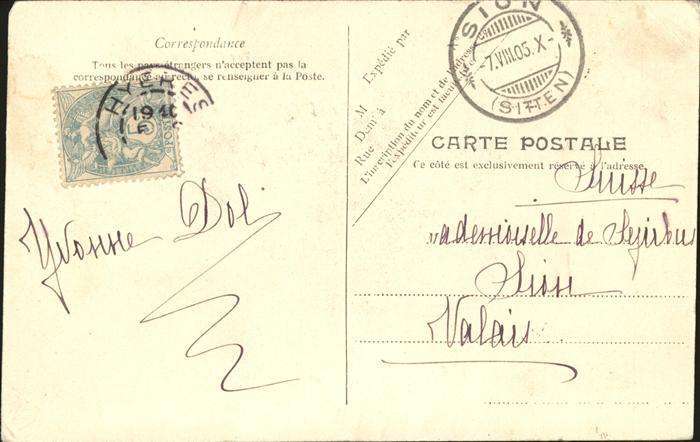 Correspondance
Tous les pays étrangers n'acceptent pas la
correspondance au recto, se renseigner à la Poste.
HYÈRES
19
5
POSTE
Yvonne Dol
Expédié par
M
Demt à
Rue
L'inscription du nom et de l'adresse
de l'expéditeur est facultative
SION
-7.VIII.05.X-
(SITTEN)
CARTE POSTALE
Ce côté est exclusivement réservé à l'adresse.
Suisse
Mademoiselle de
Sion
Valais